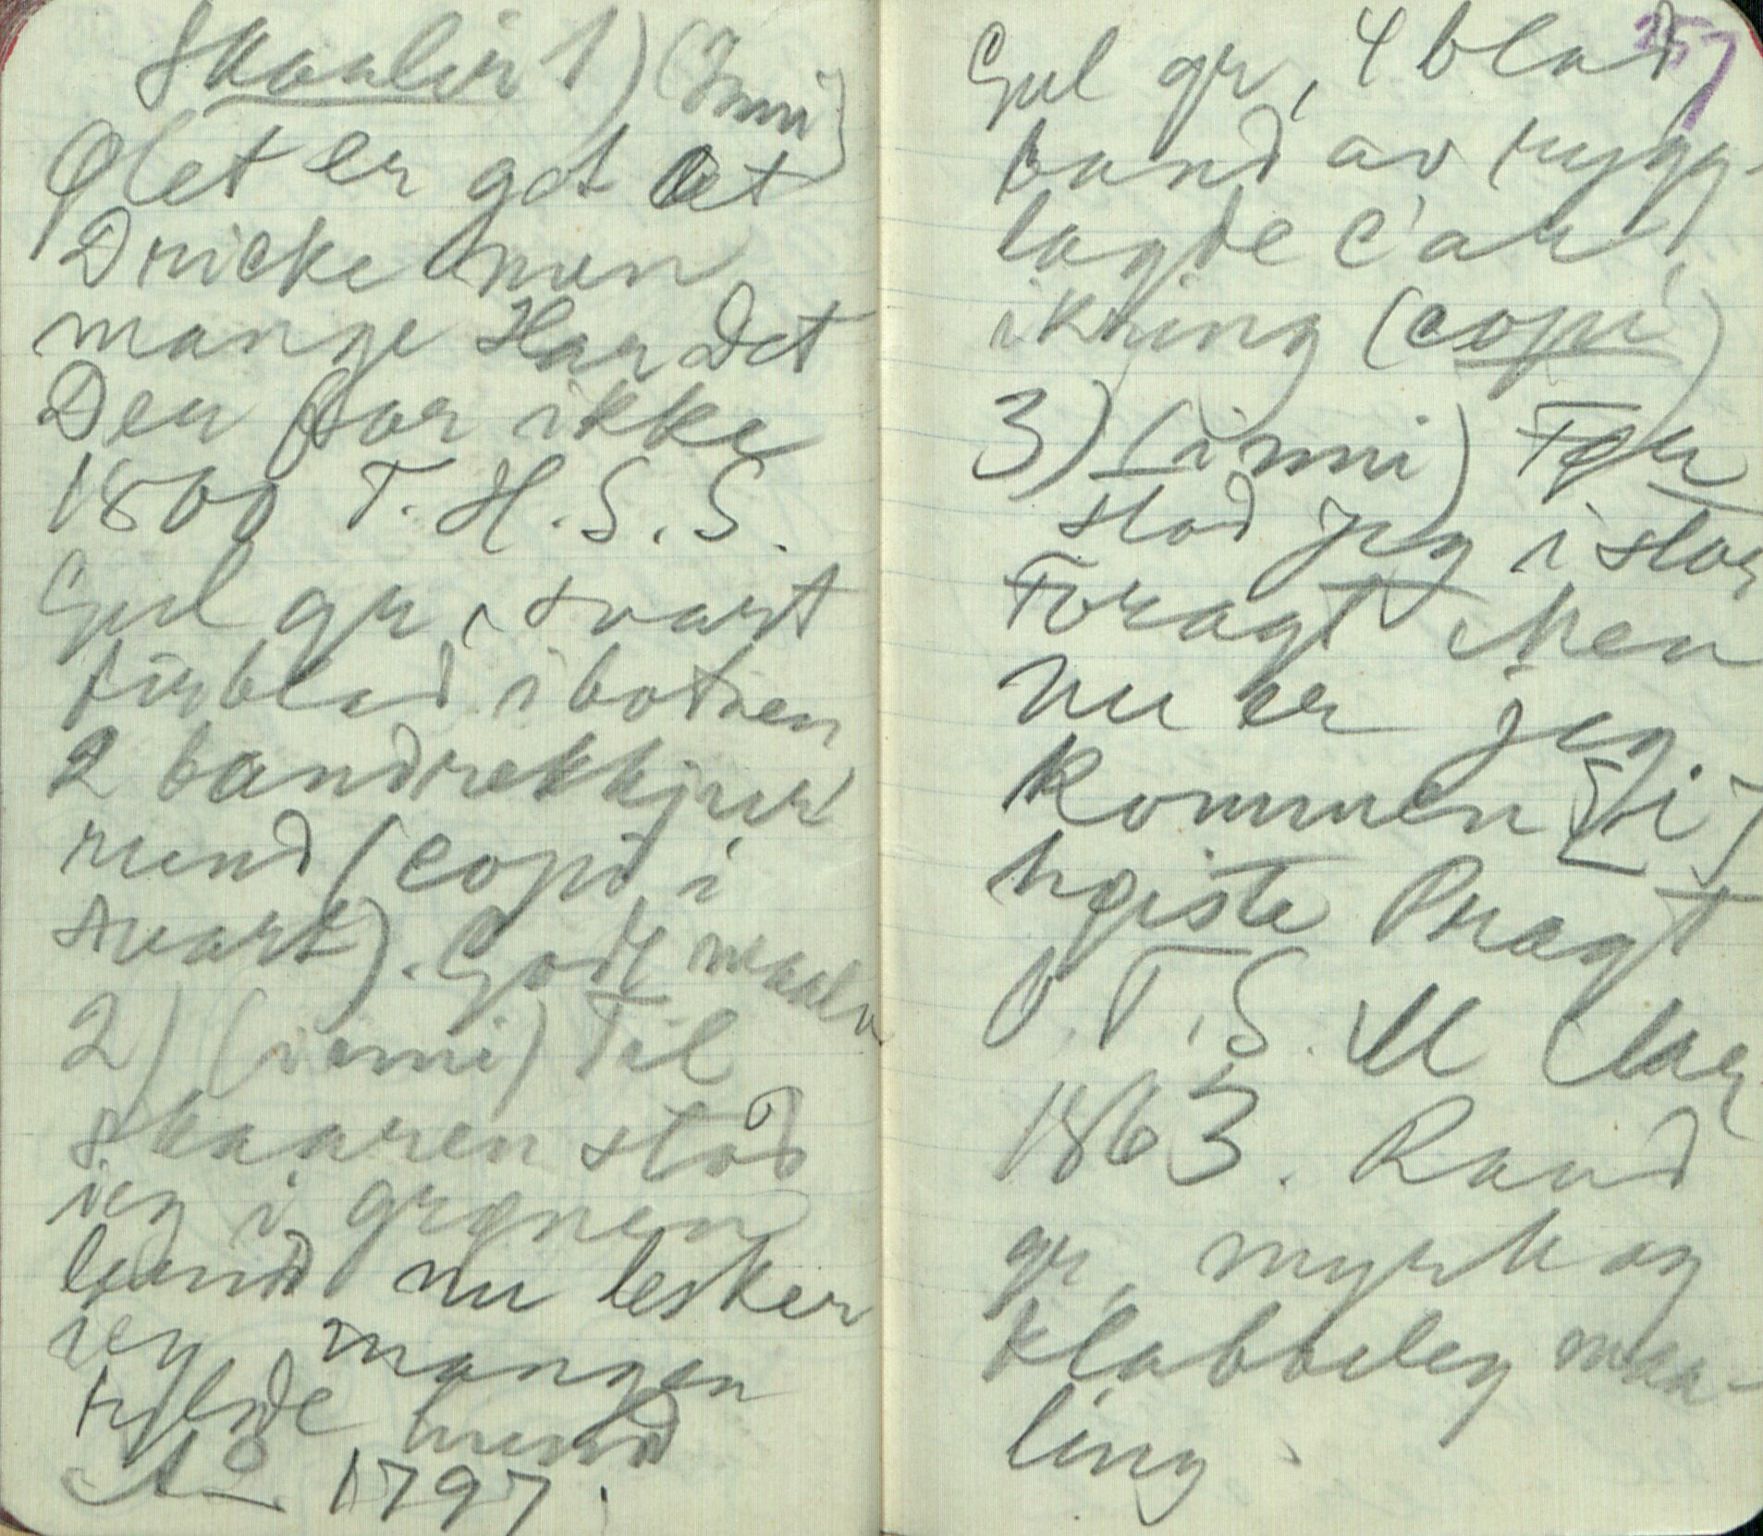 Skaaler 1) (Inni)
Ølet er got at
Dricke men
mange Har Det
Der for ikke
1800 T. H. S. S.
Gul gr, svart
firblad i botnen
2 bandrekkjur
rund (copi i
svart). Godt maala
2) (inni) Til
skaaren stod
ieg i grønen
lund nu lesker
ieg mangen
tysde mund
Ao 1797.
Gul gr, 4 blad
257
band av rygg-
lagde c'ar
ikring (copi)
3) (inni) Før
stod jeg i stor
Foragt Men
nu er jeg
kommen [i]
høiste Pragt
O. T. S. M
1863. Raud
gr, myrk og
klabbeleg maa-
ling.